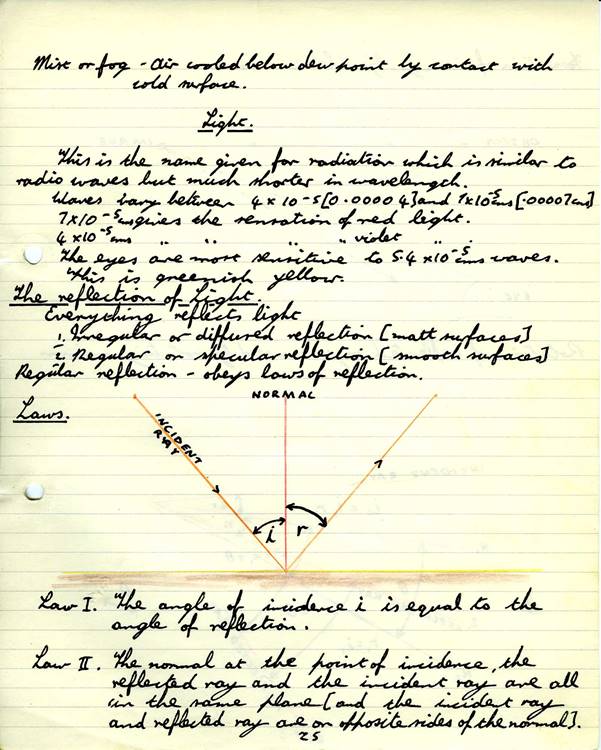 Mist or fog - Air cooled below dew point by contact with
cold surface.
Light.
This is the name given for radiation which is similar to
radio waves but much shorter in wavelength.
Waves vary between 4 x 10-5 [0.00004] and 7x10-5cms [.00007cms]
7 x 10-5cms gives the sensation of red light.
4 x 10-5cms " " " " violet "
The eyes are most sensitive to 5.4 x 10-5cms waves.
This is greenish yellow.
The reflection of Light.
Everything reflects light
1. Irregular or diffused reflection [matt surfaces]
2. Regular or specular reflection [smooth surfaces]
Regular reflection - obeys laws of reflection.
NORMAL
Laws.
INCIDENT
RAY
i r
Law I. The angle of incidence i is equal to the
angle of reflection.
Law II. The normal at the point of incidence, the
reflected ray and the incident ray are all
in the same plane [and the incident ray
and reflected ray are on opposite sides of the normal].
25